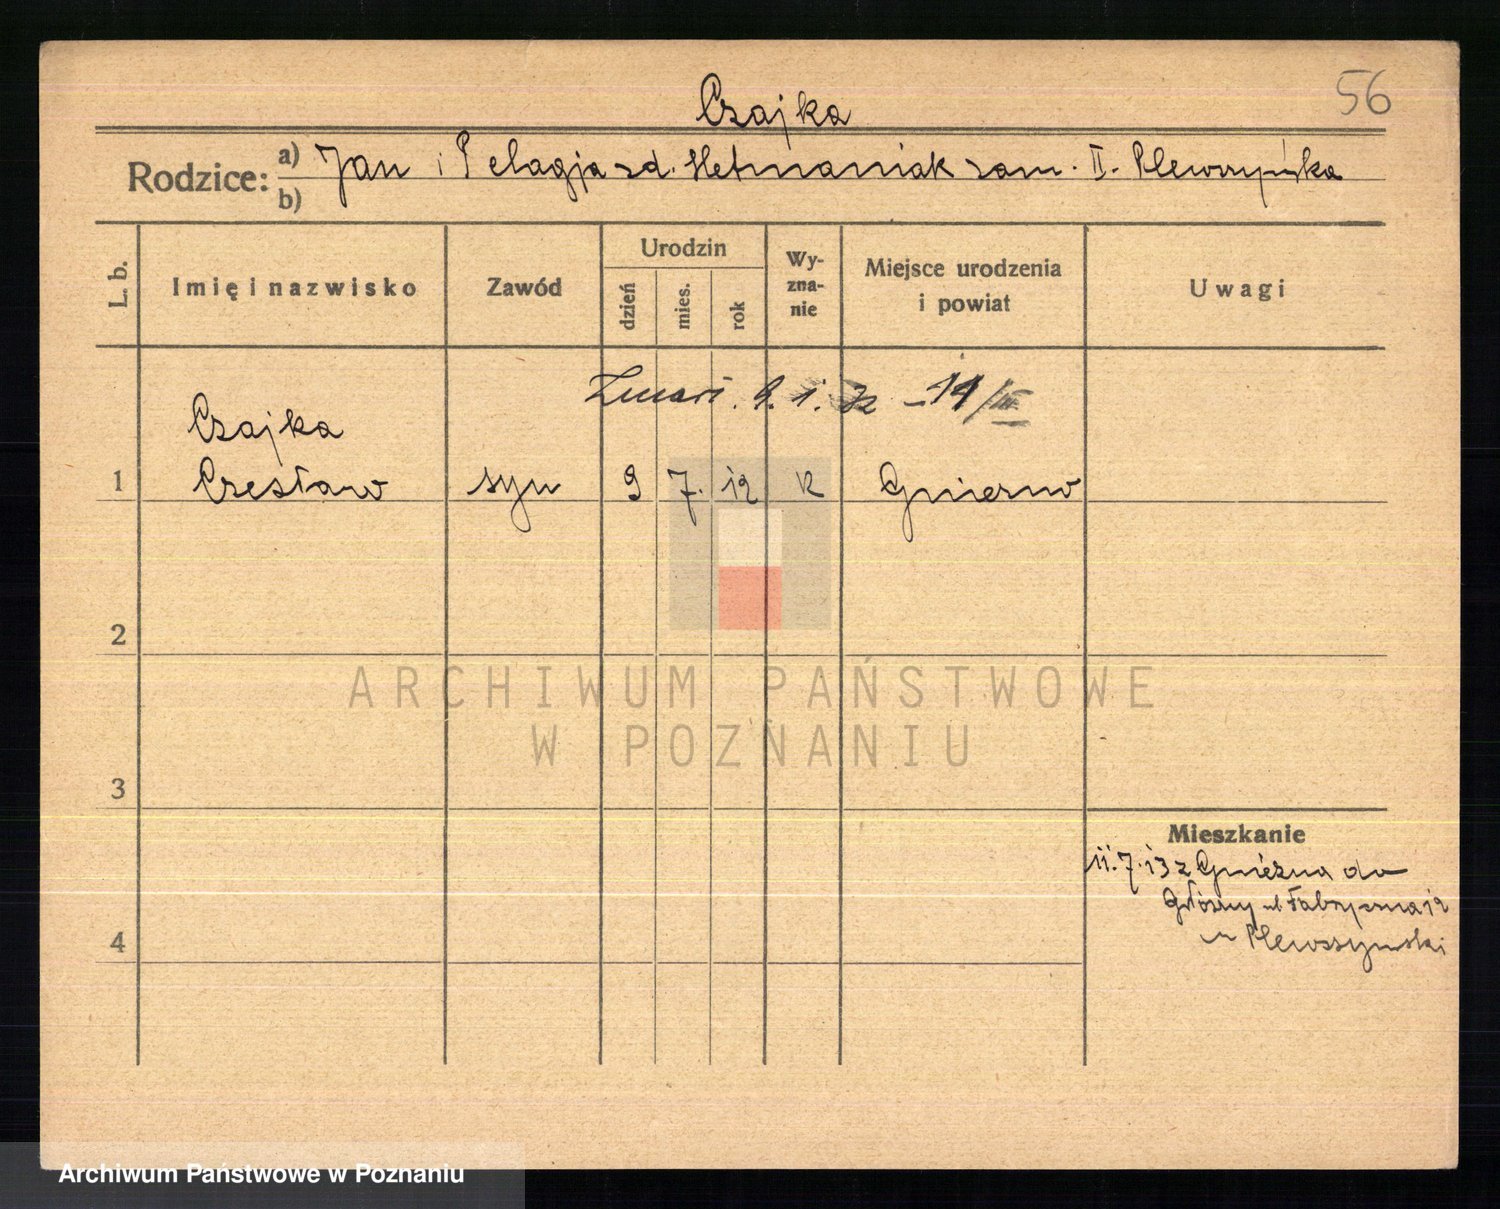 56
Czajka
Rodzice: a) Jan i Pelagja zd. Hetmaniak zam. II. Plewszyńska
b)
L. b. Imię i nazwisko Zawód Urodzin dzień mies. rok Wy-zna-nie Miejsce urodzenia i powiat Uwagi
Zmarł. 9. 1. 32 – 14/III
Czajka
1 Czesław syn 9 7. 12 K Gniezno
2
ARCHIWUM PAŃSTWOWE
W POZNANIU
3
Mieszkanie
11.7.13 z Gniezna do
Główny ul Fabryczna 12
4
Plewszyński
Archiwum Państwowe w Poznaniu